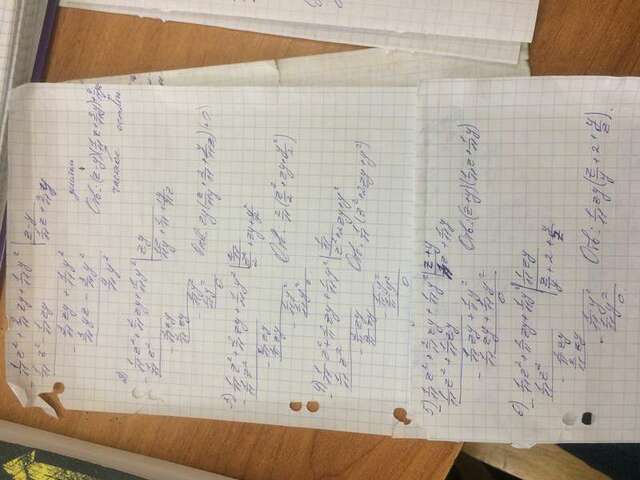 1/11 z² + 2/11 zy + 1/11 y² | z-y
1/11 z² - 1/11 zy | 1/11 z + 3/11 y
3/11 zy + 1/11 y²
3/11 yz - 3/11 y²
4/11 y²
Отв: (z-y)(1/11 z + 3/11 y) +
частное остаток
2)
1/11 z² + 2/11 zy + 1/11 y² | zy
1/11 z²
2/11 zy
2/11 zy
1/11 y²
1/11 y²
0
3) 1/11 z² + 2/11 zy + 1/11 y² | 2/11
1/11 z² | z²/2 + zy + y²/2
2/11 zy
2/11 zy
1/11 y²
1/11 y²
0
Отв. 2/11 (z²/2 + zy + y²/2)
4) 1/11 z² + 2/11 zy + 1/11 y² | 1/11
1/11 z² | z² + 2zy + y²
2/11 zy
2/11 zy
1/11 y²
1/11 y²
0
Отв. 1/11 (z² + 2zy + y²)
5) 1/11 z² + 2/11 zy + 1/11 y² | z+y
1/11 z² + 1/11 zy | 1/11 z + 1/11 y
1/11 zy + 1/11 y²
1/11 zy + 1/11 y²
0
Отв: (z+y)(1/11 z + 1/11 y)
6)
1/11 z² + 2/11 zy + 1/11 y² | 1/11 zy
1/11 z² | z/y + 2 + y/z
2/11 zy
2/11 zy
1/11 y²
1/11 y²
0
Отв: 1/11 zy (z/y + 2 + y/z).